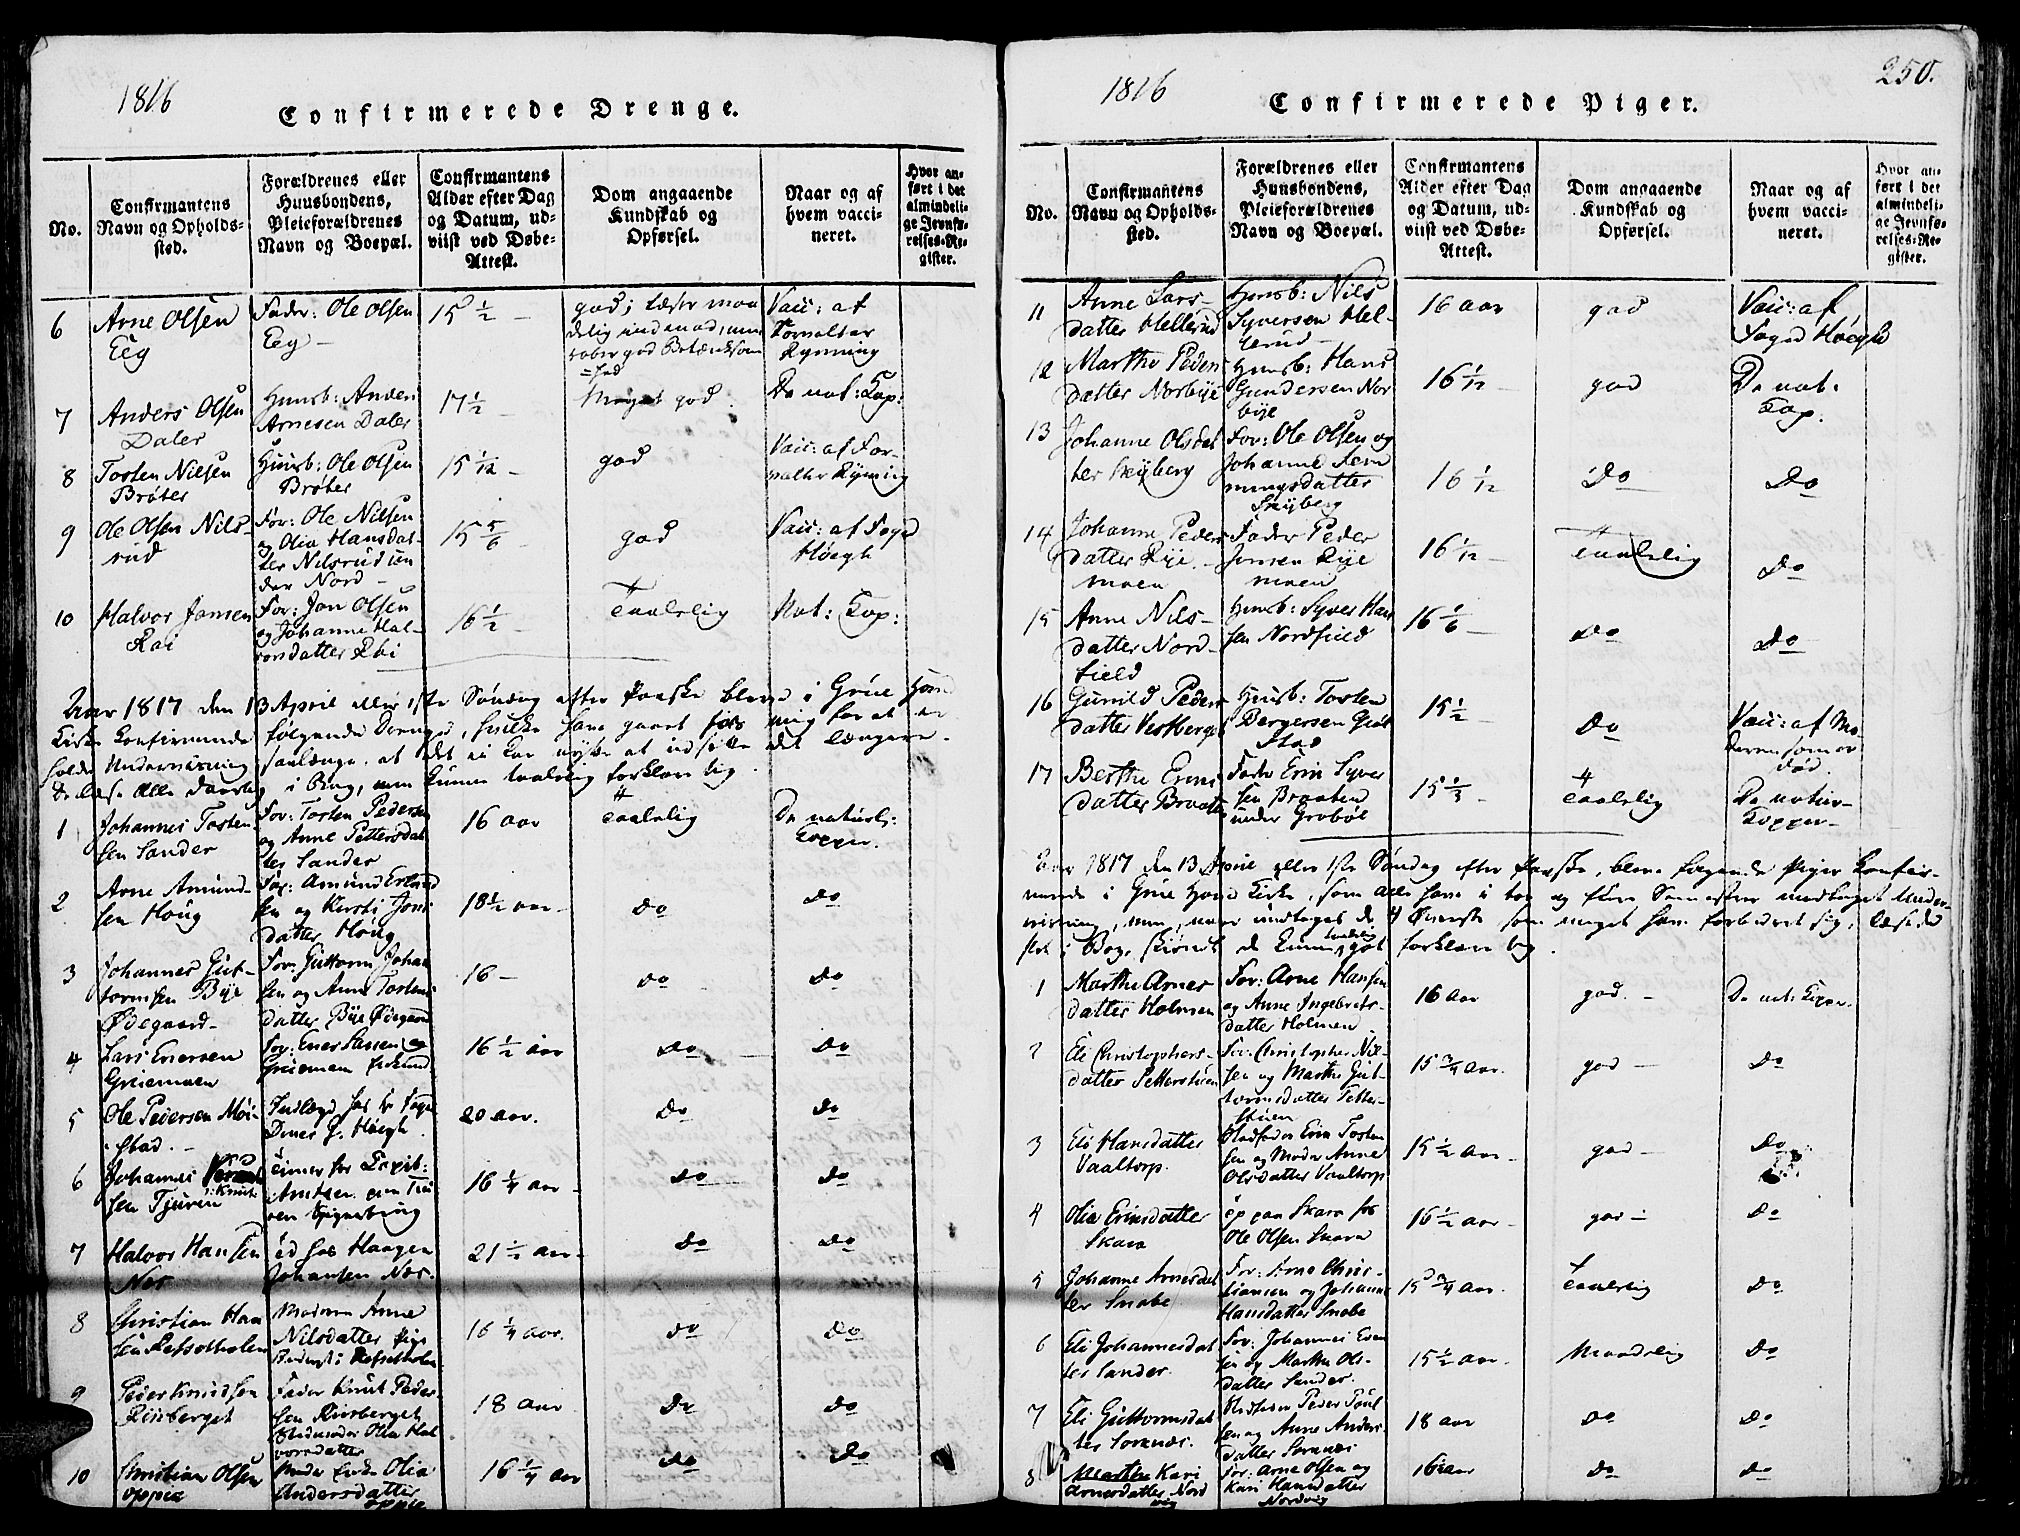 1816
Confirmerede Drenge.
No.
Confirmantens
Navn og Opholds-
sted.
Forældrenes eller
Huusbondens,
Pleieforældrenes
Navn og Boepæl.
Confirmantens
Alder efter Dag
og Datum, ud-
viist ved Døbe-
Attest.
Dom angaaende
Kundskab og
Opførsel.
Naar og af
hvem vacci-
neret.
Hvor an-
ført i det
almindeli-
ge Jevnfø-
relses-Re-
gister.
6
Arne Olsen
Eeg
Fader: Ole Olsen
Eeg
15 1/2
god; læser maa
delig
Vacc: af
Rynning
7
Anders Olsen
Daler
Huusb: Anders
Arnesen Daler
17 1/2
Meget god
De nat: Kop:
8
Tosten Nilsen
Bråter
Huusb: Ole Olsen
Bråter
15 1/12
god
Vacc: af For-
valter Rynning
9
Ole Olsen Nils-
rud
For: Ole Nilsen
og Olia Hansdat-
ter Nilsrud
Nord
15 5/6
god
Vacc: af Foged
Høegh
10
Halvor Jonsen
Rai
For: Jon Olsen
og Johanne Hal-
vorsdatter Rai
16 1/2
Taalelig
Nat: Kop:
Aar 1817 den 13 April eller 1ste Søndag efter Paaske bleve i Grue Hoved
Kirke Confirmerede følgende Drenge, hvilke have gaaet for mig for at er
holde Undervisning saalænge, at det ei kan nytte at udsætte det længere.
De læse alle daarlig i Bog, men kunne taalelig forklare sig.
1
Johannes Tosten-
sen Sander
For: Tosten Pedersen
og Anne Pettersdat
ter Sander
16 aar
Taalelig
De naturl:
Kopper.
2
Arne Amund-
sen Houg
For: Amund Erland
sen og Kersti Jons
datter Houg
18 1/2 aar
do
do
3
Johannes Gut-
tormsen Bye
Ødegaard
For: Guttorm Johan
sen og Anne Tostens
datter Bye Ødegaard
16
do
do
4
Lars Enersen
Gruemoen
For: Ener Larsen
Gruemoen
16 1/2 aar
do
do
5
Ole Pedersen Moi-
stad.
Indlagd hos Hr Foged
Høegh
20 aar.
do
do
6
Johannes
Knut
sen Tjuren
Tiener for Capit:
16 1/4 aar
do
do
7
Halvor Hansen
Nor
Haagen
Johansen Nor.
21 1/2 aar
do
do
8
Christian Han
sen Refsetholen
Moderen Anne
Nilsdatter
Refsetholen
16 1/4 aar.
do
do
9
Peder Knudsen
Rinberget
Fader Knut Peder
sen Rinberget
Stedmoder Olia Hal
vorsdatter
18 aar
do
do
10
Christian Olsen
Oppie
Moder Enke Olia
Andersdatter
Oppie
16 1/4 aar
do
do
1816
Confirmerede Piger.
250.
No.
Confirmantens
Navn og Opholds-
sted.
Forældrenes eller
Huusbondens,
Pleieforældrenes
Navn og Boepæl.
Confirmantens
Alder efter Dag
og Datum, ud-
viist ved Døbe-
Attest.
Dom angaaende
Kundskab og
Opførsel.
Naar og af
hvem vacci-
neret.
Hvor an-
ført i det
almindeli-
ge Jevnfø-
relses-Re-
gister.
11
Anne Lars-
datter Hellerud
Huusb: Nils
Syversen Hel-
lerud
16 aar
god
Vacc: af
Foged Høegh
12
Marthe Peders
datter Norbye
Huusb: Hans
Gundersen Nor
bye
16 1/12
god
De nat:
Kop.
13
Johanne Olsdat
ter Skyberg
For: Ole Olsen og
Johanne Fem
mingsdatter
Skyberg
16 1/12
Do
Do
14
Johanne Peders
datter Rye-
moen
Fader Peder
Jensen Rye
moen
16 1/12
Taalelig
Do
15
Anne Nils-
datter Nord-
field
Huusb: Syver Han
sen Nordfield
16 1/6
Do
Do
16
Gunild Peders
datter Vestberget
Huusb: Tosten
Bergersen
stad
15 1/2
Do
Vacc: af Mo
deren, som er
død.
17
Berthe Erens
datter Braaten
Fader Eren Syver
sen Braaten
under Grobøl
15 1/3
Taalelig
De natur-
Kopper
Aar 1817 den 13 April eller 1ste Søndag efter Paaske, bleve følgende Piger Confir-
merede i Grue Hoved Kirke, som alle have i to og flere Semestere modtaget Under-
visning, men, naar undtages de 4 Øverste som meget have forbedret sig, læse de
slet i Bog, skiønt de kunne taalelig got forklare sig.
1
Marthe Arnes
datter Holmen
For: Arne Hansen
og Anne Ingebrets-
datter Holmen
16 aar
god.
De nat: Kopper.
2
Eli Christophers-
datter Petterstuen
For: Christopher Nil-
sen og Marthe Gut-
tormsdatter Petter-
stuen
15 3/4 aar.
god
Do
3
Eli Hansdatter
Vaaltorp.
Stedfader Eren Tosten
sen og Moder Anne
Olsdatter Vaaltorp
15 1/2 aar
god
Do
4
Olia Erensdatter
Skara
er paa Skara hos
Ole Olsen Skara
16 1/2 aar
god
Do
5
Johanne Arnesdat
ter Snabe
For: Arne Chris-
tiansen og Johanne
Hansdatter Snabe
15 3/4 aar.
Taalelig
Do
6
Eli Johannesdat
ter Sander.
For: Johannes Even
sen og Marthe Ols-
datter Sander.
15 1/2 aar.
Maadelig
Do
7
Eli Guttormsdat
ter Sorknes.
Stedfader Peder Poul
sen og Anne Anders-
datter Sorknes
18 aar
do
do
8
Kari
Arnesdatter Nord
vig
For: Arne Olsen og
Kari Hansdatter
Nordvig
16 aar
do
do